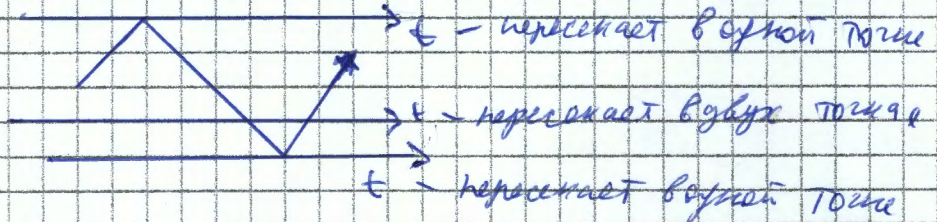 t - пересекает в одной точке
t - пересекает в двух точках
t - пересекает в одной точке